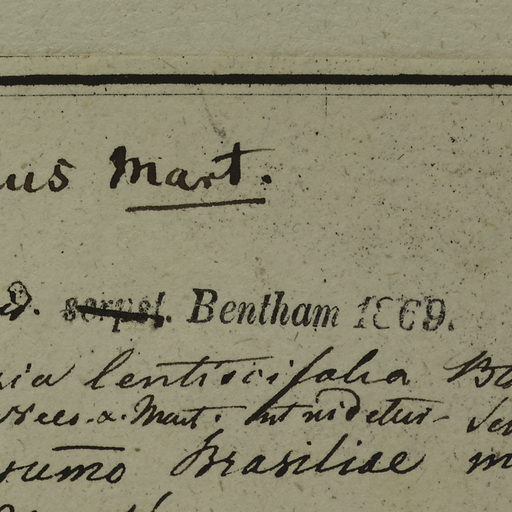 us Mart.
d. scrpst. Bentham 1869.
ia lentiscifolia B
Nees. a. Mart. ut videtur
Brasiliae m